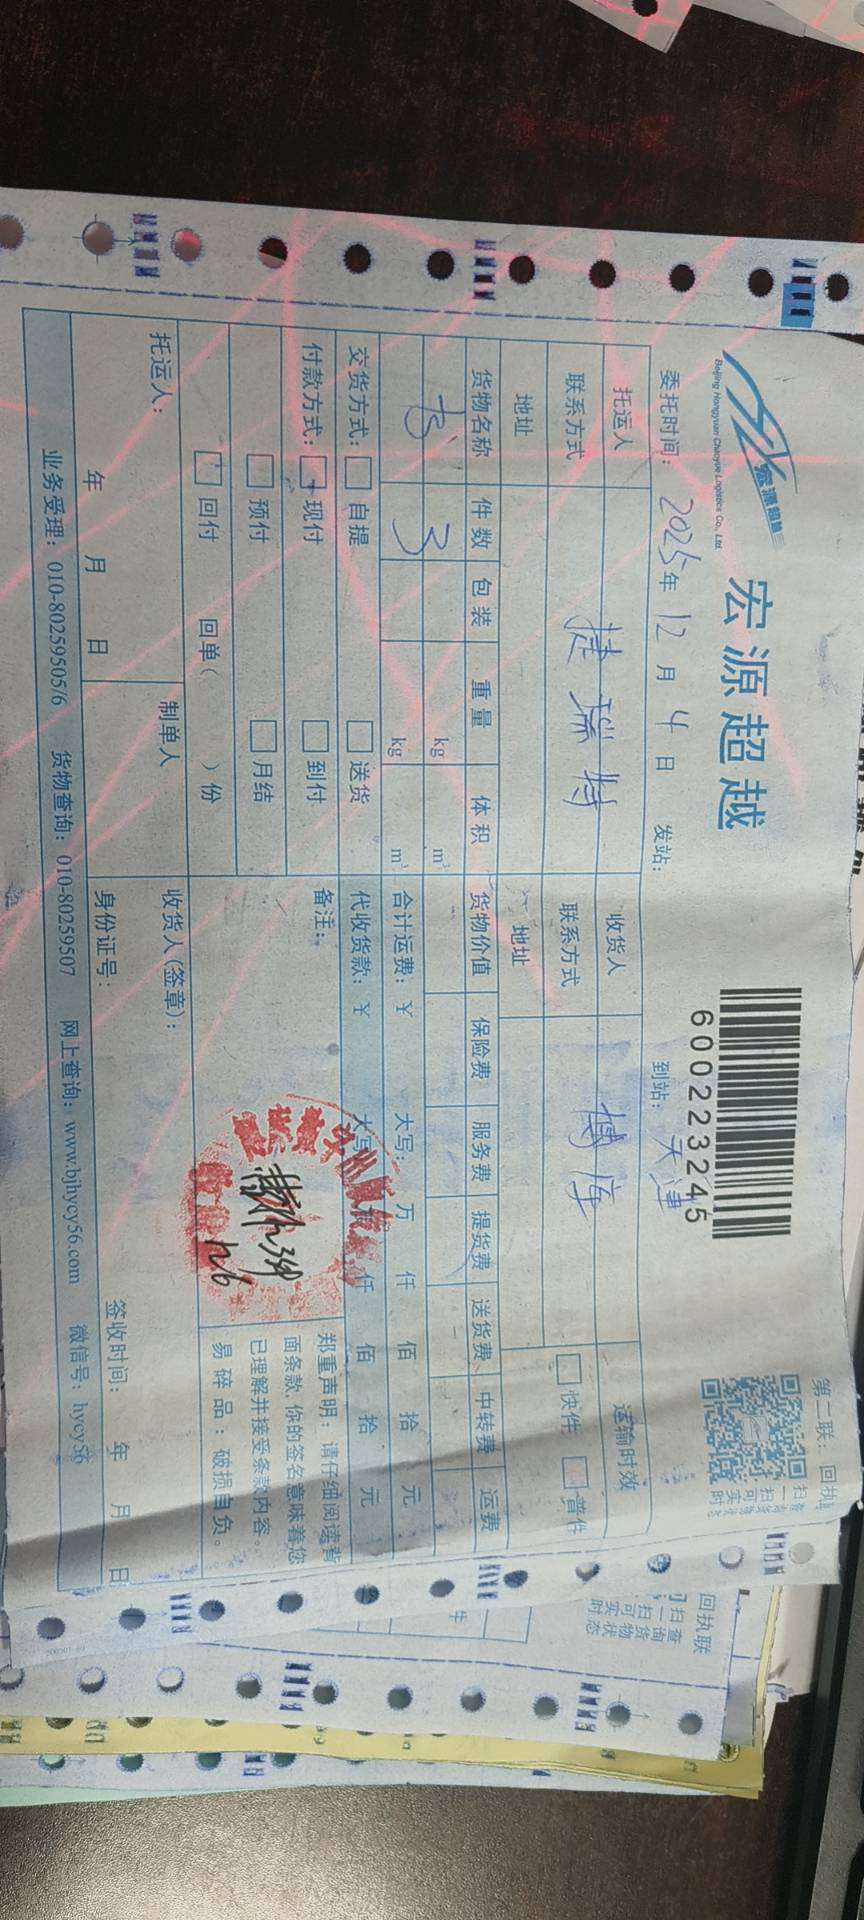 宏源超越
Beijing Hongyuan Chaoyue Logistics Co., Ltd.
宏源超越
600223245
第二联：回执
扫一扫
查询货物
可实时
委托时间：2025年12月4日 发站： 到站：天津
托运人 捷瑞特 收货人 博海 运输时效
联系方式 联系方式 快件 普件
地址 地址
货物名称 件数 包装 重量 体积 货物价值 保险费 服务费 提货费 送货费 中转费 运费
3 kg m³
kg m³ 合计运费：￥ 大写： 万 仟 佰 拾 元
交货方式： 自提 送货 代收货款：￥ 大写 仟 佰 拾 元
付款方式： 现付 到付 备注：
预付 月结
回付 回单（ ）份
郑重声明：请仔细阅读背
面条款，你的签名意味着您
已理解并接受条款内容。
易碎品：破损自负。
托运人： 制单人 收货人(签章)：
年 月 日 身份证号： 签收时间： 年 月 日
业务受理：010-80259505/6 货物查询：010-80259507 网上查询：www.bjhycy56.com 微信号：hycy56
回执联
扫一扫
查询货物状态
可实时